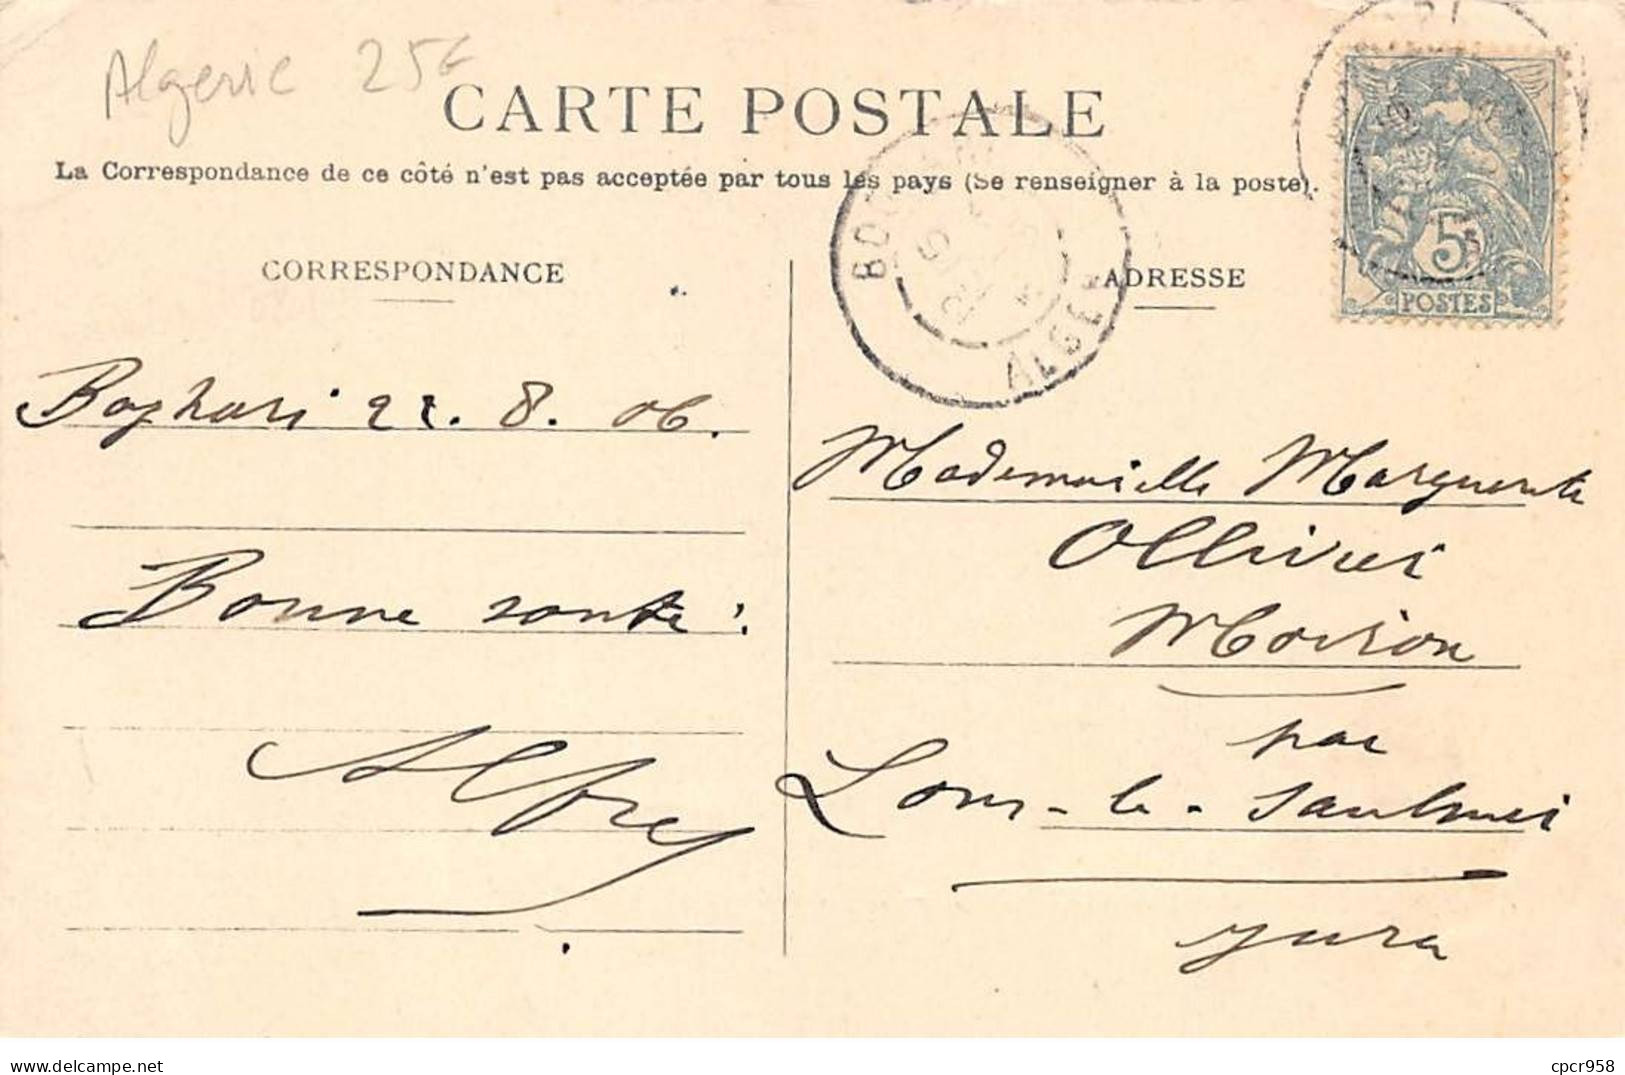 Algerie 25€
CARTE POSTALE
La Correspondance de ce côté n'est pas acceptée par tous les pays (Se renseigner à la poste).
CORRESPONDANCE
ADRESSE
5
POSTES
ALGER
Boghari 22. 8. 06.
Bonne santé!
Alfred
Mademoiselle Marguerite
Ollivier
Moiron
par
Lons-le-Saulnier
Jura
cpcr958